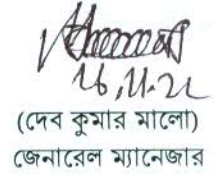 16.11.22
(দেব কুমার মালো)
জেনারেল ম্যানেজার